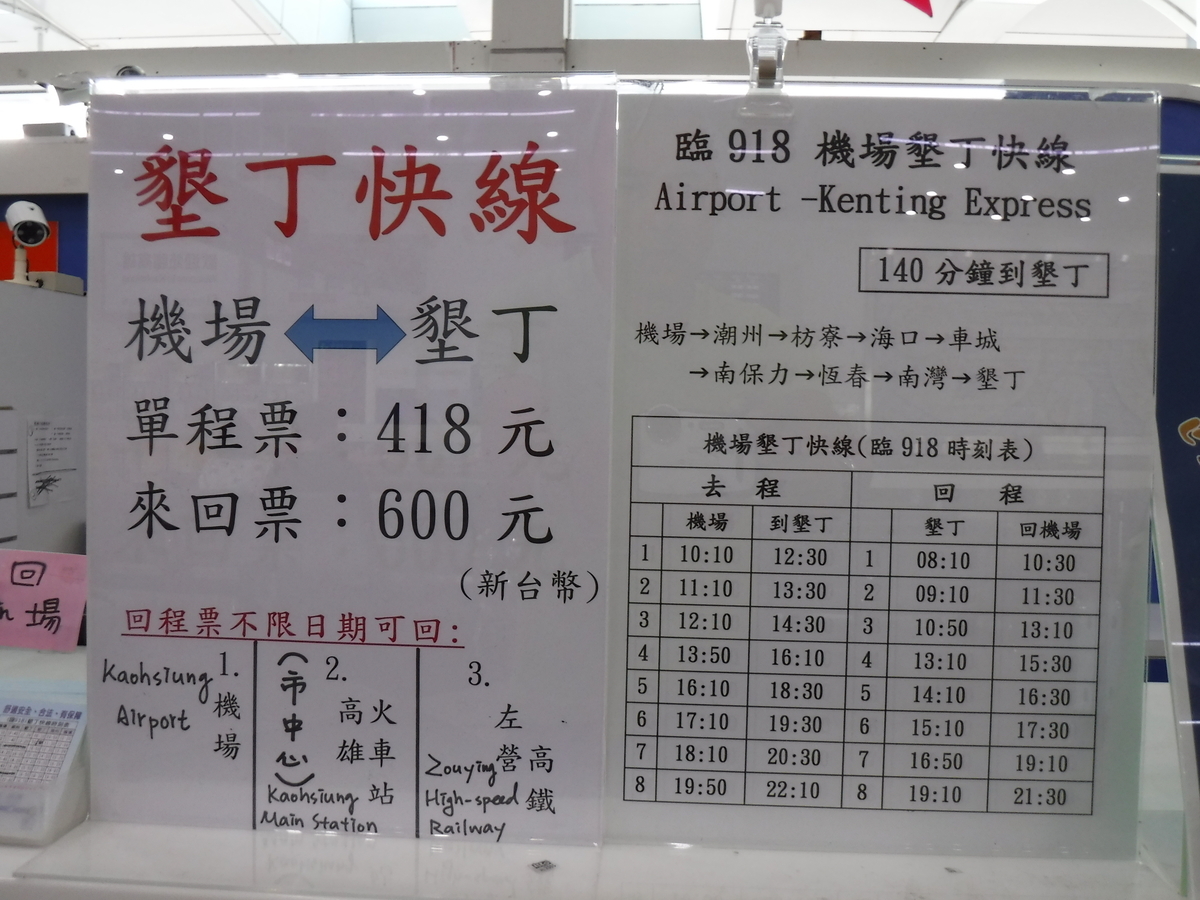 墾丁快線
機場 墾丁
單程票：418 元
來回票：600 元
(新台幣)
回程票不限日期可回：
1.
機場
Kaohsiung
Airport
2.
高雄火車站
(市中心)
Kaohsiung
Main Station
3.
左營高鐵
Zouying
High-speed
Railway
臨 918 機場墾丁快線
Airport -Kenting Express
140 分鐘到墾丁
機場→潮州→枋寮→海口→車城
→南保力→恆春→南灣→墾丁
機場墾丁快線(臨 918 時刻表)
去 程 回 程
機場 到墾丁 墾丁 回機場
1 10:10 12:30 1 08:10 10:30
2 11:10 13:30 2 09:10 11:30
3 12:10 14:30 3 10:50 13:10
4 13:50 16:10 4 13:10 15:30
5 16:10 18:30 5 14:10 16:30
6 17:10 19:30 6 15:10 17:30
7 18:10 20:30 7 16:50 19:10
8 19:50 22:10 8 19:10 21:30
回
場